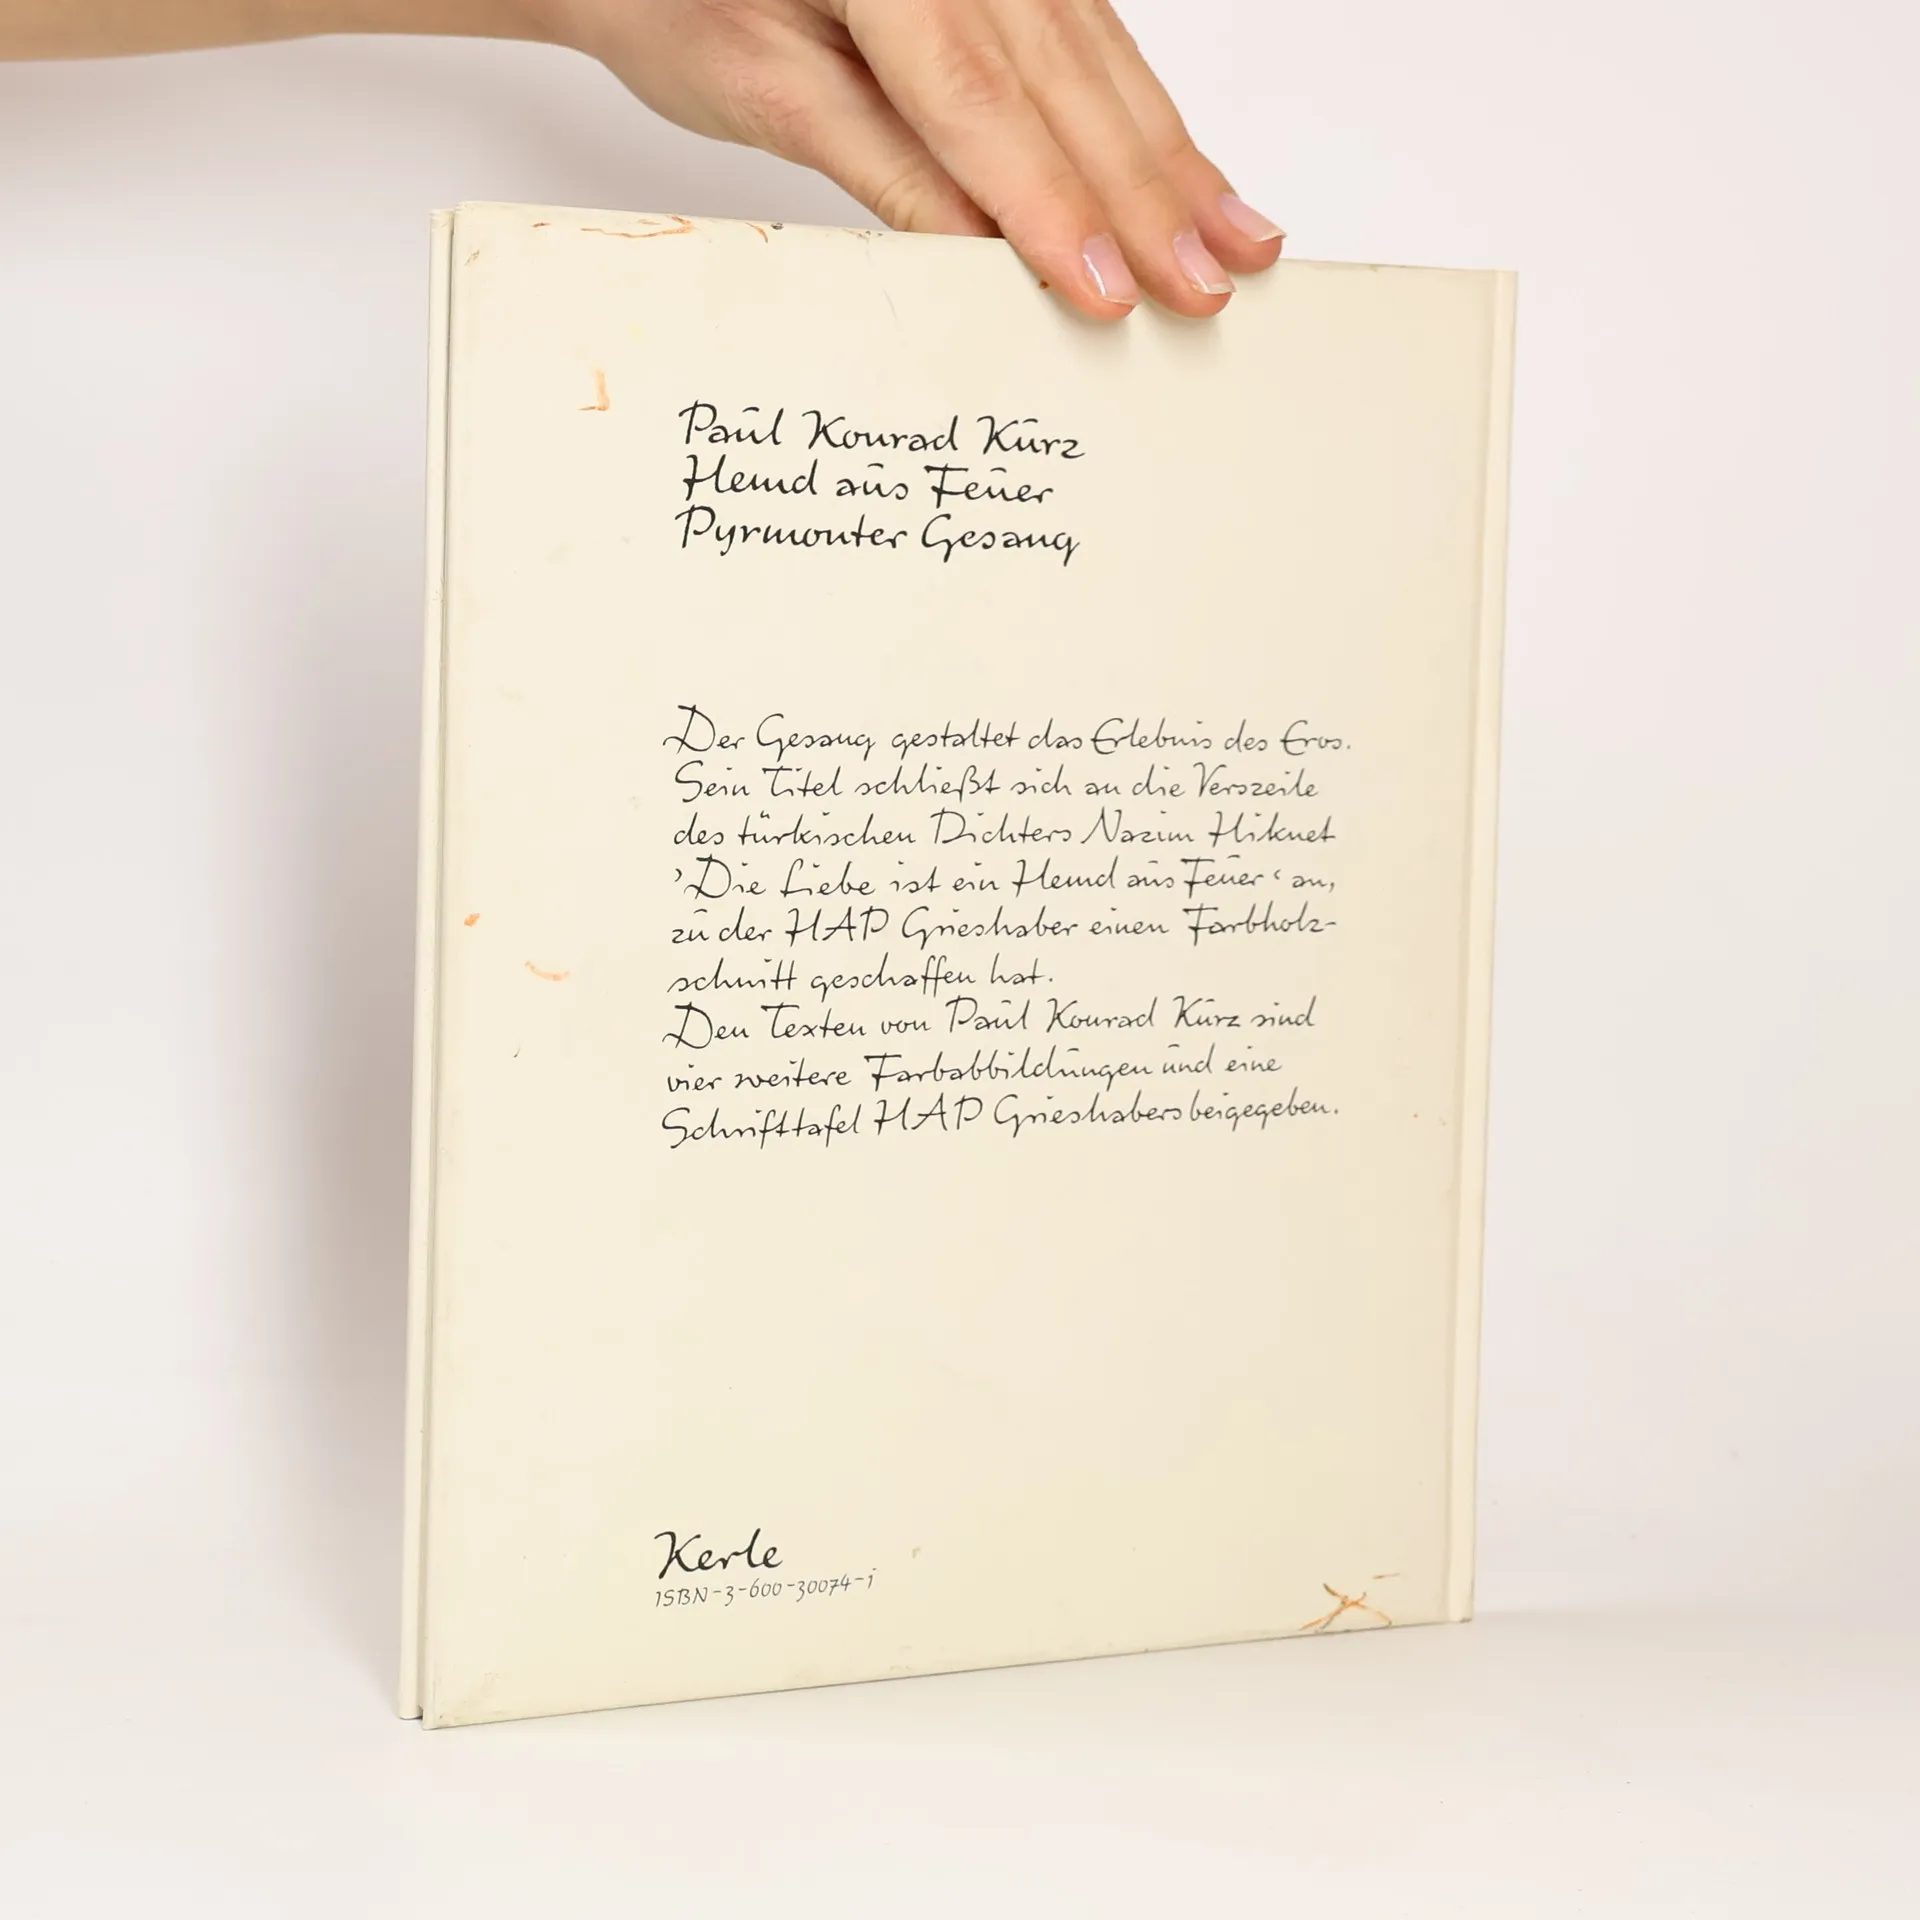 Paul Konrad Kurz
Hemd aus Feuer
Pyrmonter Gesang
Der Gesang gestaltet das Erlebnis des Eros.
Sein Titel schließt sich an die Verszeile
des türkischen Dichters Nazim Hikmet
›Die Liebe ist ein Hemd aus Feuer‹ an,
zu der HAP Grieshaber einen Farbholz-
schnitt geschaffen hat.
Den Texten von Paul Konrad Kurz sind
vier weitere Farbabbildungen und eine
Schrifttafel HAP Grieshabers beigegeben.
Kerle
ISBN-3-600-30074-1